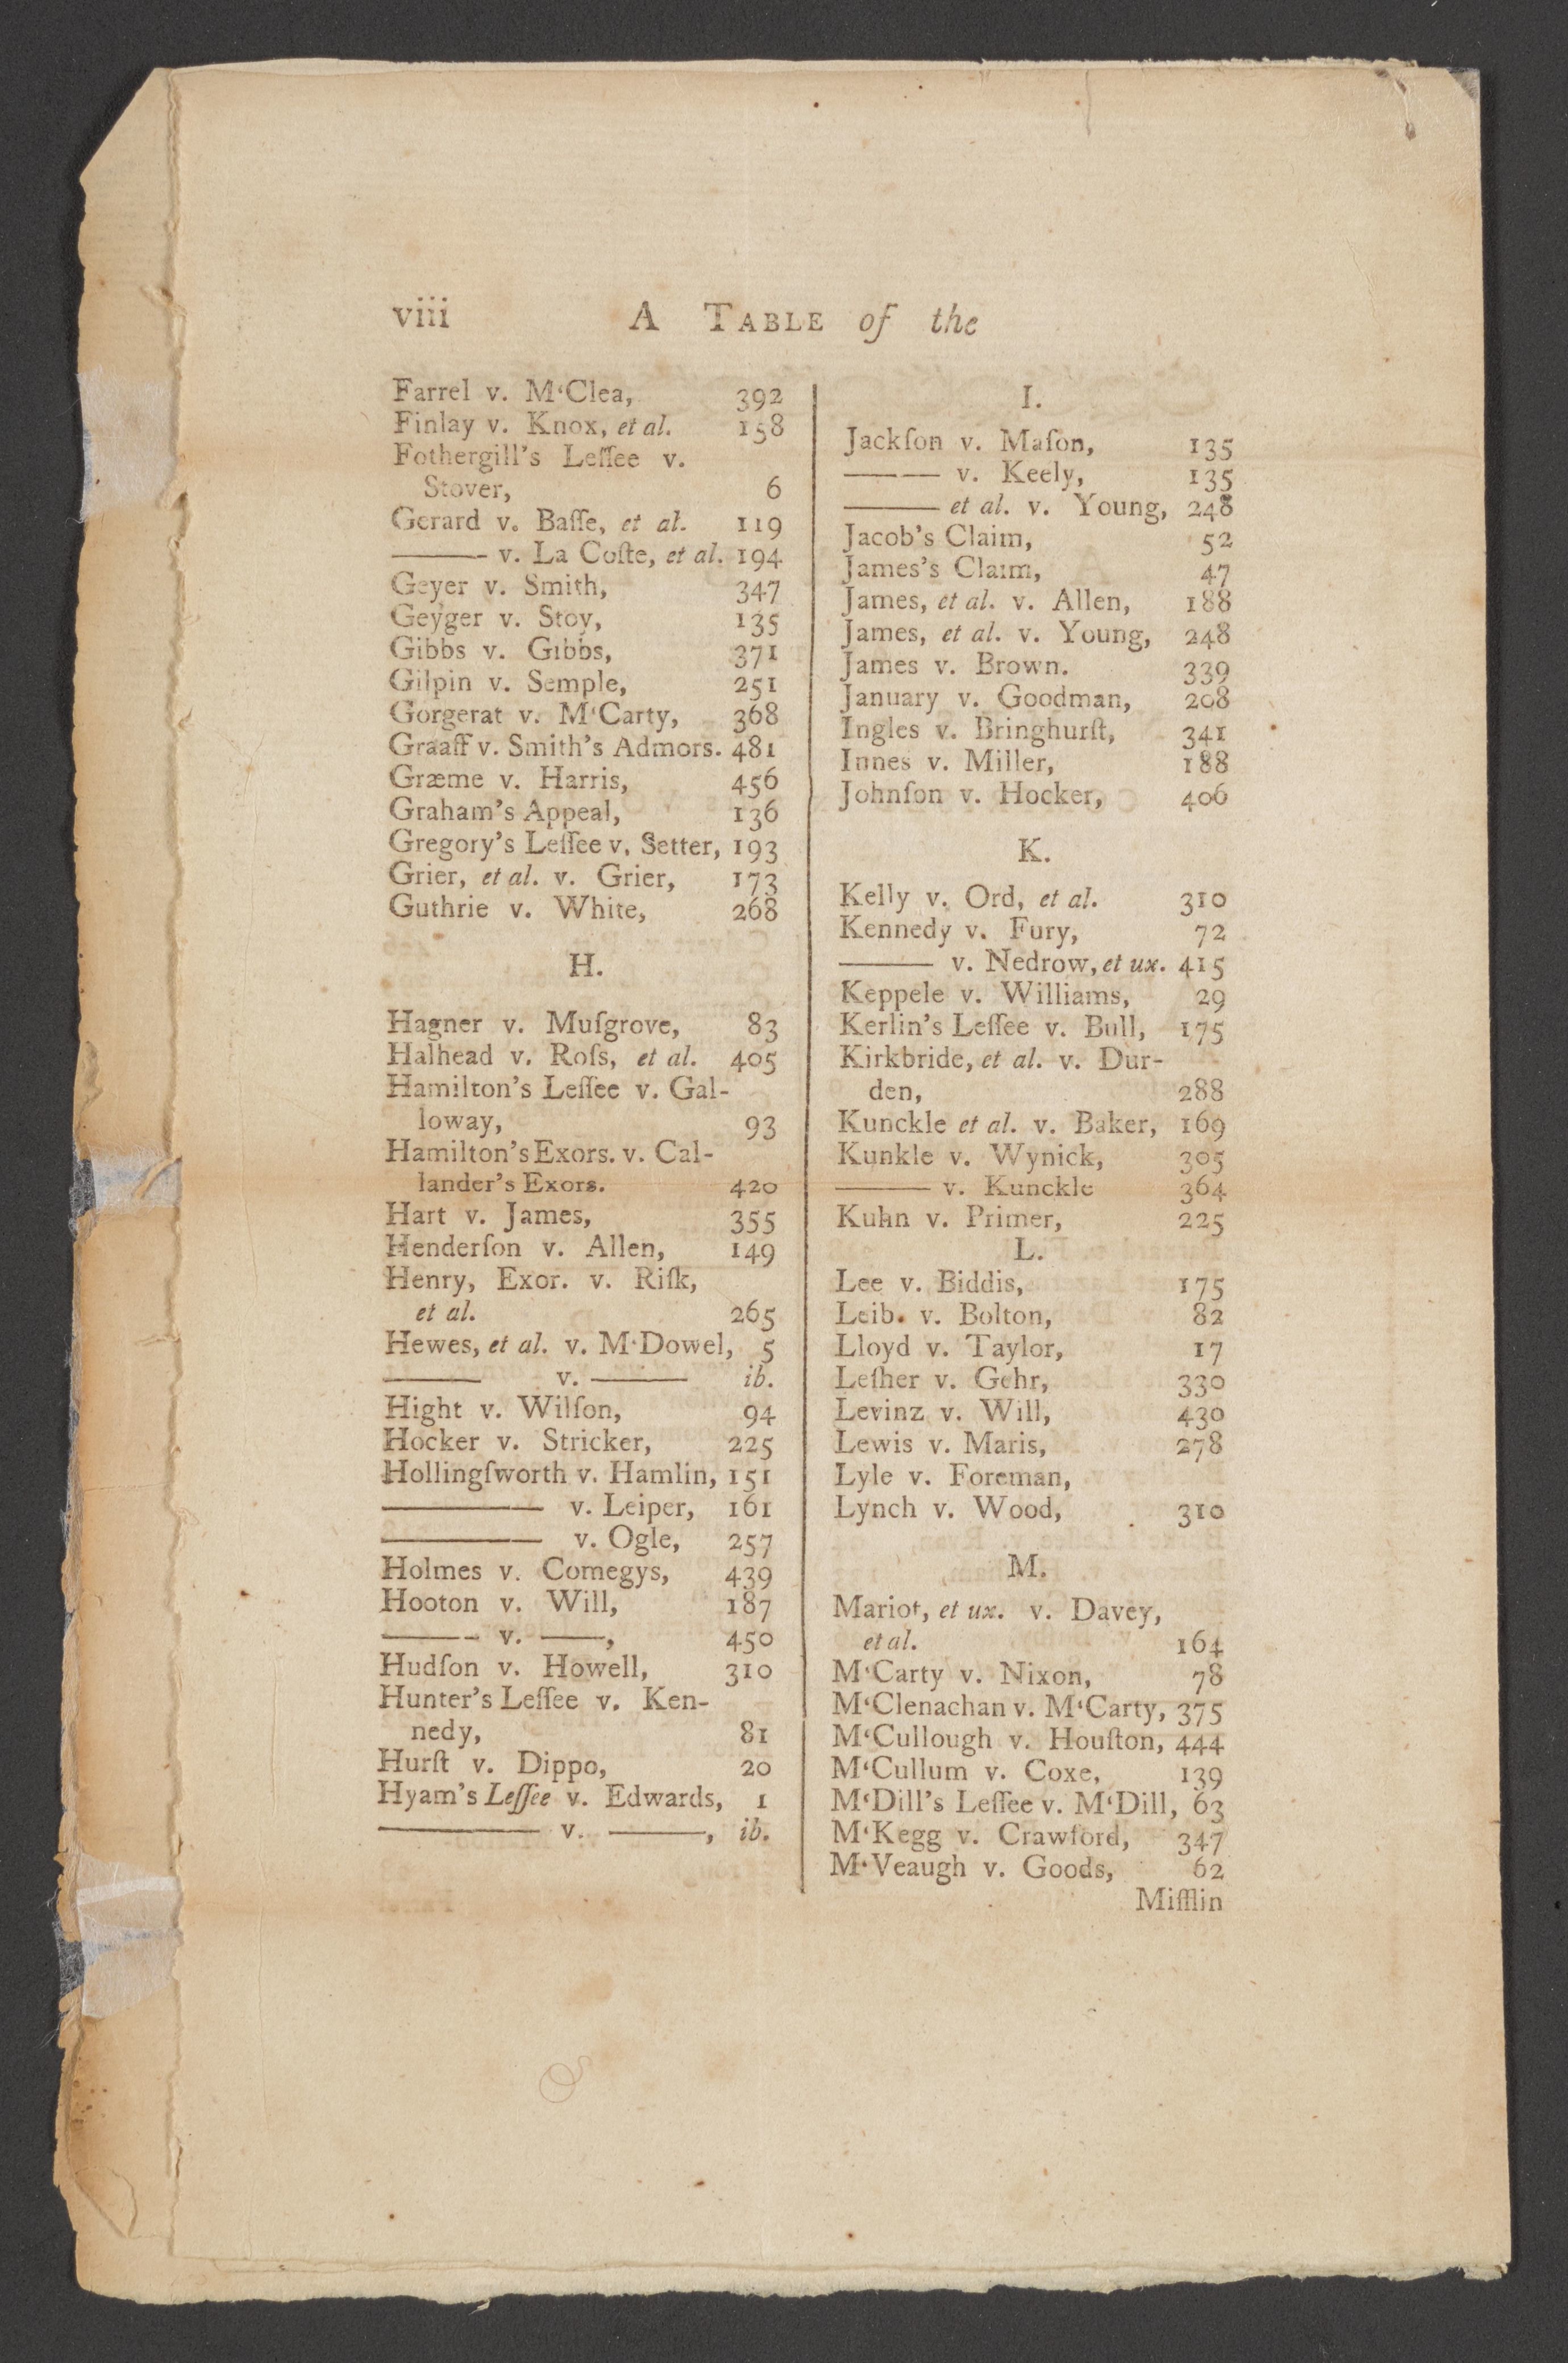 viii A TABLE of the
Farrel v. M‘Clea, 392
Finlay v. Knox, et al. 158
Fothergill's Leſſee v.
Stover, 6
Gerard v. Baſſe, et al. 119
——— v. La Coſte, et al. 194
Geyer v. Smith, 347
Geyger v. Stoy, 135
Gibbs v. Gibbs, 371
Gilpin v. Semple, 251
Gorgerat v. M‘Carty, 368
Graaff v. Smith's Admors. 481
Græme v. Harris, 456
Graham's Appeal, 136
Gregory's Leſſee v. Setter, 193
Grier, et al. v. Grier, 173
Guthrie v. White, 268
H.
Hagner v. Muſgrove, 83
Halhead v. Roſs, et al. 405
Hamilton's Leſſee v. Gal-
loway, 93
Hamilton's Exors. v. Cal-
lander's Exors. 420
Hart v. James, 355
Henderſon v. Allen, 149
Henry, Exor. v. Riſk,
et al. 265
Hewes, et al. v. M‘Dowel, 5
——— v. ——— ib.
Hight v. Wilſon, 94
Hocker v. Stricker, 225
Hollingſworth v. Hamlin, 151
————— v. Leiper, 161
————— v. Ogle, 257
Holmes v. Comegys, 439
Hooton v. Will, 187
——— v. ——, 450
Hudſon v. Howell, 310
Hunter's Leſſee v. Ken-
nedy, 81
Hurſt v. Dippo, 20
Hyam's Leſſee v. Edwards, 1
————— v. ———, ib.
I.
Jackſon v. Maſon, 135
——— v. Keely, 135
——— et al. v. Young, 248
Jacob's Claim, 52
James's Claim, 47
James, et al. v. Allen, 188
James, et al. v. Young, 248
James v. Brown. 339
January v. Goodman, 208
Ingles v. Bringhurſt, 341
Innes v. Miller, 188
Johnſon v. Hocker, 406
K.
Kelly v. Ord, et al. 310
Kennedy v. Fury, 72
——— v. Nedrow, et ux. 415
Keppele v. Williams, 29
Kerlin's Leſſee v. Bull, 175
Kirkbride, et al. v. Dur-
den, 288
Kunckle et al. v. Baker, 169
Kunkle v. Wynick, 305
——— v. Kunckle 364
Kuhn v. Primer, 225
L.
Lee v. Biddis, 175
Leib. v. Bolton, 82
Lloyd v. Taylor, 17
Leſher v. Gehr, 330
Levinz v. Will, 430
Lewis v. Maris, 278
Lyle v. Foreman,
Lynch v. Wood, 310
M.
Mariot, et ux. v. Davey,
et al. 164
M‘Carty v. Nixon, 78
M‘Clenachan v. M‘Carty, 375
M‘Cullough v. Houſton, 444
M‘Cullum v. Coxe, 139
M‘Dill's Leſſee v. M‘Dill, 63
M‘Kegg v. Crawford, 347
M‘Veaugh v. Goods, 62
Mifflin